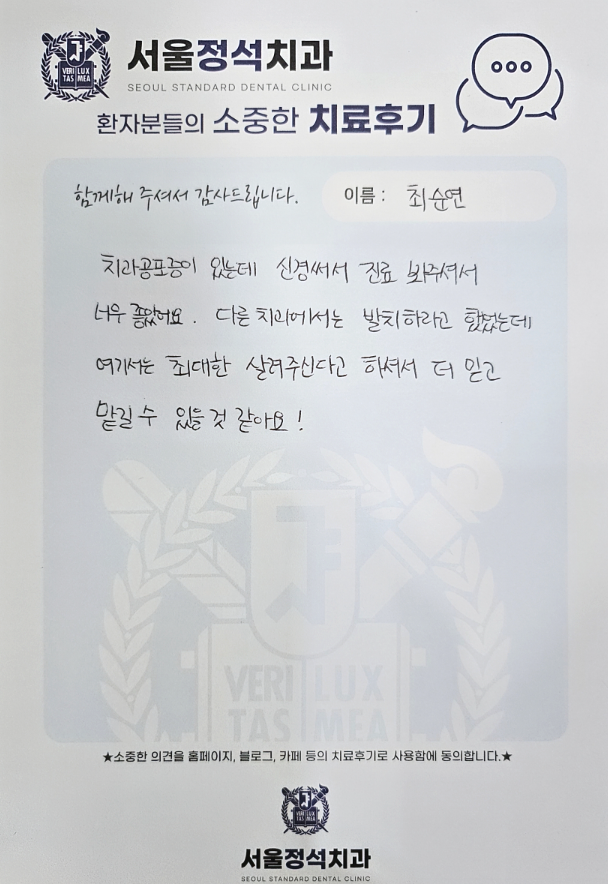 서울정석치과
SEOUL STANDARD DENTAL CLINIC
VERI LUX
TAS MEA
환자분들의 소중한 치료후기
함께해 주셔서 감사드립니다. 이름 : 최순연
치과공포증이 있는데 신경써서 진료 봐주셔서
너무 좋았어요. 다른 치과에서는 발치하라고 했었는데
여기서는 최대한 살려주신다고 하셔서 더 믿고
맡길 수 있을 것 같아요!
VERI LUX
TAS MEA
★소중한 의견을 홈페이지, 블로그, 카페 등의 치료후기로 사용함에 동의합니다.★
서울정석치과
SEOUL STANDARD DENTAL CLINIC